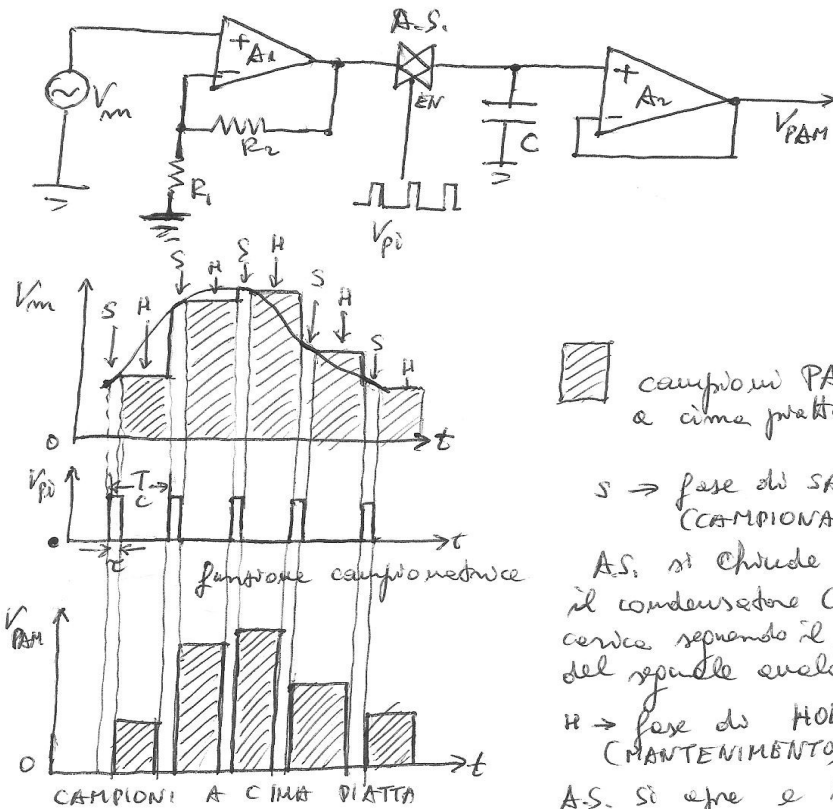 A.S.
+
A1
-
Vm
R2
R1
EN
C
+
A2
-
VPAM
Vpi
Vm
S H S H S H S H S H
0
t
Vpi
Tc
τ
t
funzione campionatrice
VPAM
0
t
CAMPIONI A CIMA PIATTA
campioni PA
a cima piatt
S → fase di SA
(CAMPIONA
A.S. si chiude
il condensatore C
carica seguendo il
del segnale analo
H → fase di HOL
(MANTENIMENTO)
A.S. si apre e